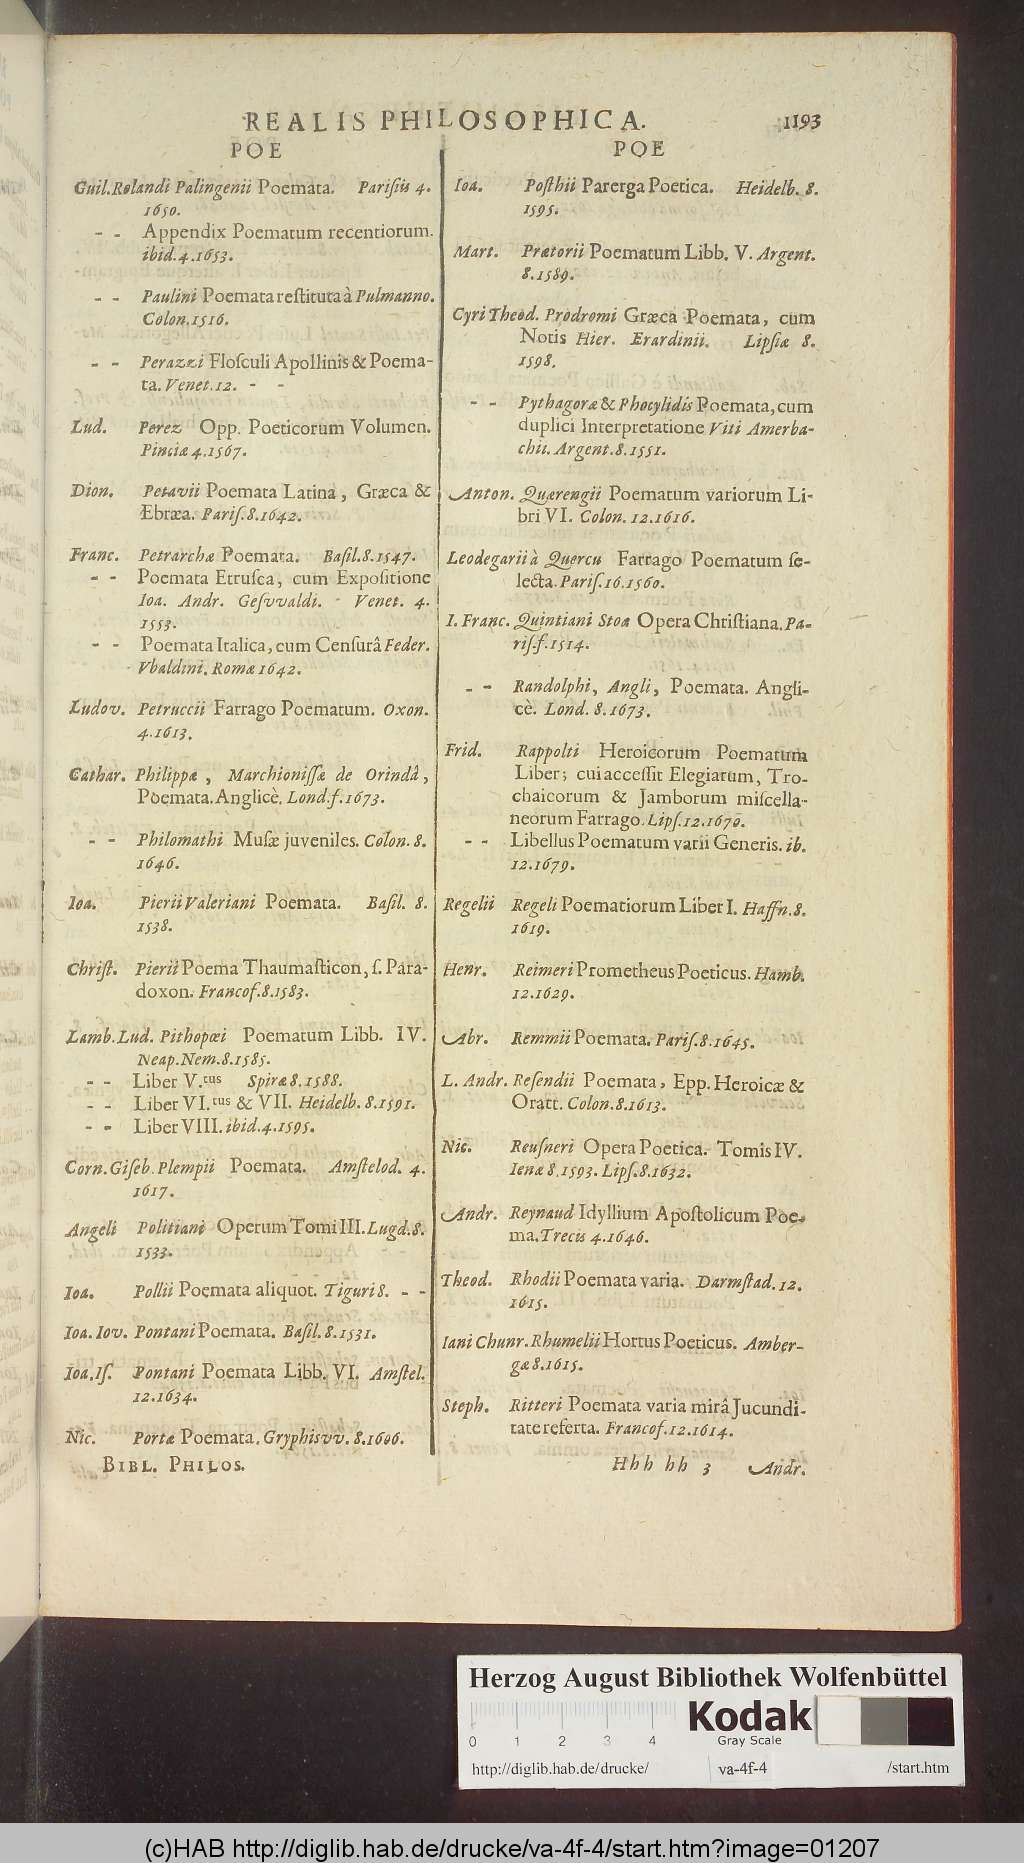 REALIS PHILOSOPHICA. 1193
POE
Guil. Rolandi Palingenii Poemata. Pariſiis 4.
1650.
- - Appendix Poematum recentiorum.
ibid. 4. 1653.
- - Paulini Poemata reſtituta à Pulmanno.
Colon. 1516.
- - Perazzi Floſculi Apollinis & Poema-
ta. Venet. 12. - -
Lud. Perez Opp. Poeticorum Volumen.
Pinciæ 4. 1567.
Dion. Petavii Poemata Latina, Græca &
Ebræa. Pariſ. 8. 1642.
Franc. Petrarchæ Poemata. Baſil. 8. 1547.
- - Poemata Etruſca, cum Expoſitione
Ioa. Andr. Geſvvaldi. - Venet. 4.
1553.
- - Poemata Italica, cum Cenſurâ Feder.
Vbaldini. Romæ 1642.
Ludov. Petruccii Farrago Poematum. Oxon.
4. 1613.
Cathar. Philippæ, Marchioniſſæ de Orindâ,
Poemata. Anglicè. Lond. f. 1673.
- - Philomathi Muſæ juveniles. Colon. 8.
1646.
Ioa. Pierii Valeriani Poemata. Baſil. 8.
1538.
Chriſt. Pierii Poema Thaumaſticon, ſ. Para-
doxon. Francof. 8. 1583.
Lamb. Lud. Pithopœi Poematum Libb. IV.
Neap. Nem. 8. 1585.
- - Liber V.tus Spiræ 8. 1588.
- - Liber VI.tus & VII. Heidelb. 8. 1591.
- - Liber VIII. ibid. 4. 1595.
Corn. Giſeb. Plempii Poemata. Amſtelod. 4.
1617.
Angeli Politiani Operum Tomi III. Lugd. 8.
1533.
Ioa. Pollii Poemata aliquot. Tiguri 8. - -
Ioa. Iov. Pontani Poemata. Baſil. 8. 1531.
Ioa. Iſ. Pontani Poemata Libb. VI. Amſtel.
12. 1634.
Nic. Portæ Poemata. Gryphisvv. 8. 1606.
BIBL. PHILOS.
POE
Ioa. Poſthii Parerga Poetica. Heidelb. 8.
1595.
Mart. Prætorii Poematum Libb. V. Argent.
8. 1589.
Cyri Theod. Prodromi Græca Poemata, cum
Notis Hier. Erardinii. Lipſiæ 8.
1598.
- - Pythagoræ & Phocylidis Poemata, cum
duplici Interpretatione Viti Amerba-
chii. Argent. 8. 1551.
Anton. Quærengii Poematum variorum Li-
bri VI. Colon. 12. 1616.
Leodegarii à Quercu Farrago Poematum ſe-
lecta. Pariſ. 16. 1560.
I. Franc. Quintiani Stoæ Opera Chriſtiana. Pa-
riſ. f. 1514.
- - Randolphi, Angli, Poemata. Angli-
cè. Lond. 8. 1673.
Frid. Rappolti Heroicorum Poematum
Liber; cui acceſſit Elegiarum, Tro-
chaicorum & Jamborum miſcella-
neorum Farrago. Lipſ. 12. 1670.
- - Libellus Poematum varii Generis. ib.
12. 1679.
Regelii Regeli Poematiorum Liber I. Haffn. 8.
1619.
Henr. Reimeri Prometheus Poeticus. Hamb.
12. 1629.
Abr. Remmii Poemata. Pariſ. 8. 1645.
L. Andr. Reſendii Poemata, Epp. Heroicæ &
Oratt. Colon. 8. 1613.
Nic. Reuſneri Opera Poetica. Tomis IV.
Ienæ 8. 1593. Lipſ. 8. 1632.
Andr. Reynaud Idyllium Apoſtolicum Poe-
ma. Trecis 4. 1646.
Theod. Rhodii Poemata varia. Darmſtad. 12.
1615.
Iani Chunr. Rhumelii Hortus Poeticus. Amber-
gæ 8. 1615.
Steph. Ritteri Poemata varia mirâ Jucundi-
tate referta. Francof. 12. 1614.
Hhh hh 3 Andr.
Herzog August Bibliothek Wolfenbüttel
Kodak
Gray Scale
0 1 2 3 4
http://diglib.hab.de/drucke/ va-4f-4 /start.htm
(c)HAB http://diglib.hab.de/drucke/va-4f-4/start.htm?image=01207